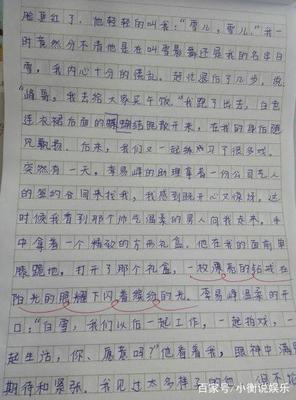 脸更红了，他轻轻的叫我："雪儿，雪儿。"我一
时竟然分不清他是在叫雪晨曦还是我的名字白
雪，我内心十分的慌乱。赶忙退后了几步，说：
"峰哥，我去给大家买午饭。"我跑了出去，白色
连衣裙后面的蝴蝶结飘散开来，在我的身后随
风飘散。后来，我们又一起练习了很多戏。
突然有一天，李易峰的助理拿着一份公司艺人
的签约合同来找我，我感到既开心又惊讶。这
时候我看到那个帅气温柔的男人向我走来，手
中拿着一个精致的方形礼盒，他在我的面前单
膝跪地，打开了那个礼盒，一枚漂亮的钻戒在
阳光的照耀下闪着缤纷的光。李易峰温柔的开
口："白雪，我们以后一起工作，一起拍戏，一
起生活，你，愿意吗？"他看着我，眼神中满是
期待和紧张。我见过太多样子的
百家号/小衡说娱乐